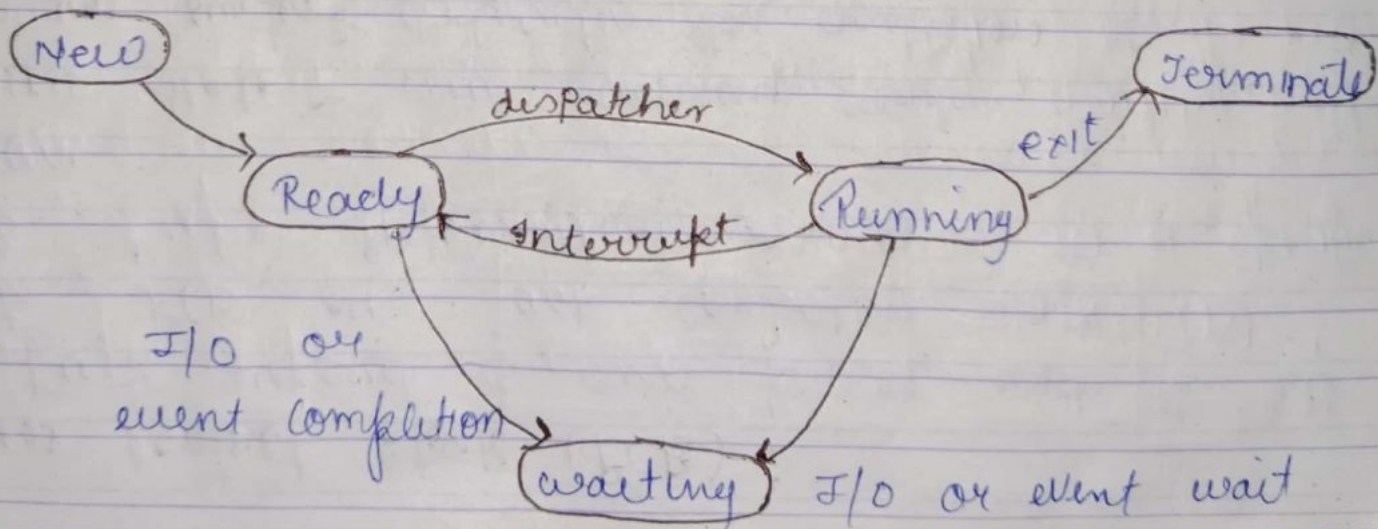 New
Terminate
dispatcher
exit
Ready
Running
Interrupt
I/O or
event completion
waiting
I/O or event wait